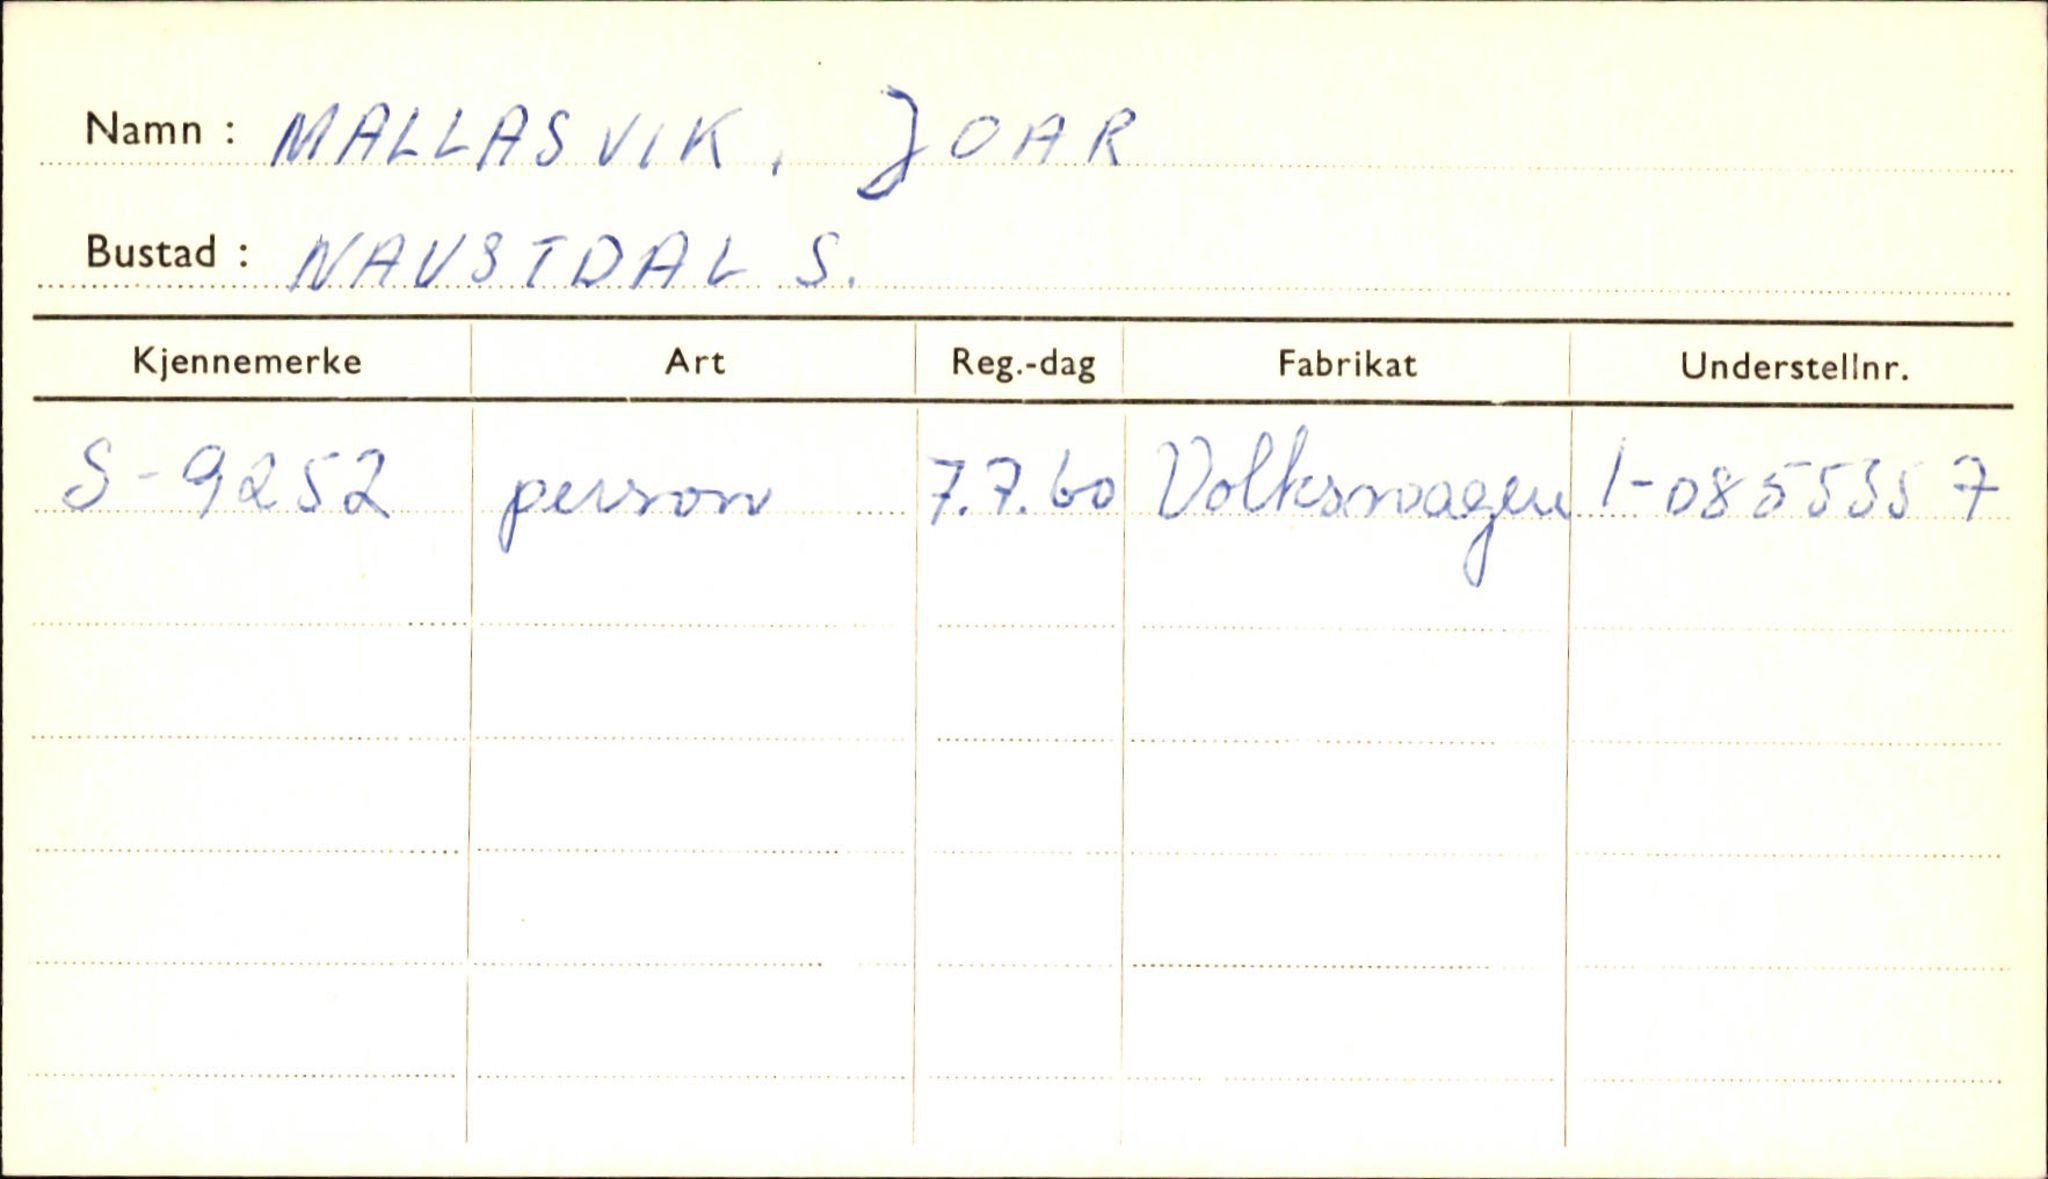 Namn : MALLASVIK, JOAR
Bustad : NAVSTDAL S.
Kjennemerke Art Reg.-dag Fabrikat Understellnr.
S-9252 person 7.7.60 Volkswagen 1-0855357